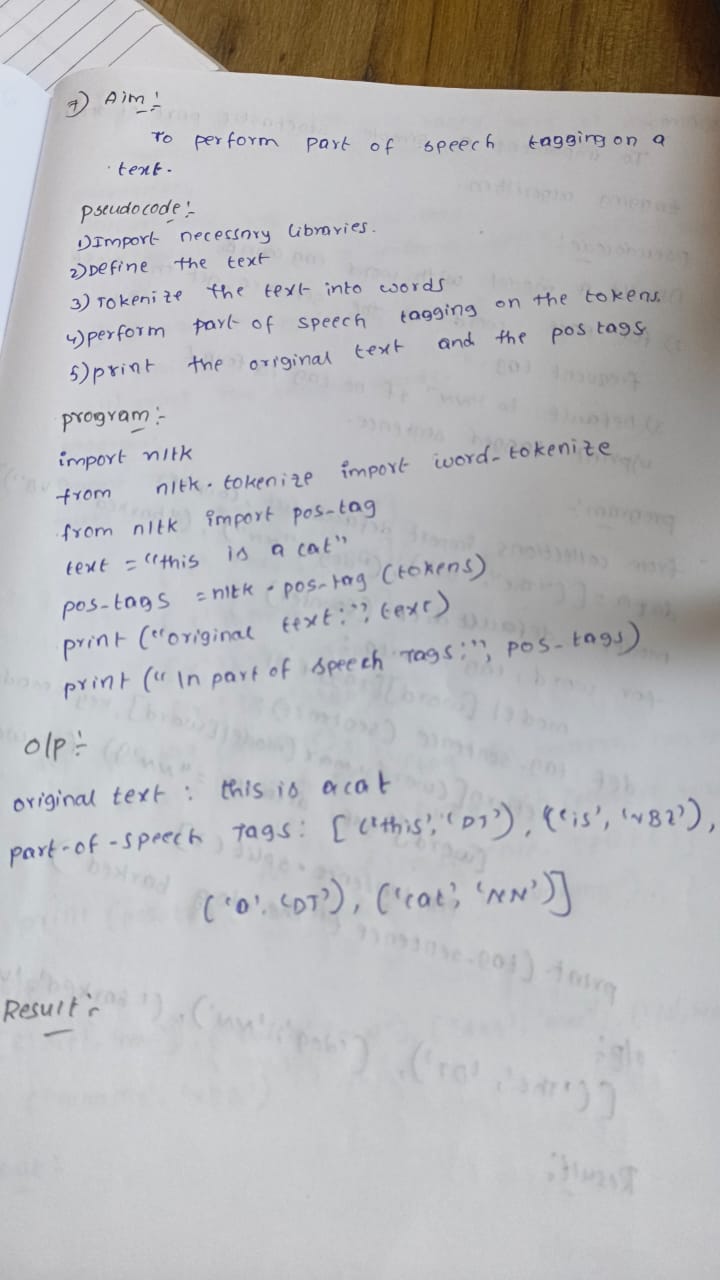 7) Aim :-
To perform part of speech tagging on a
text.
pseudocode :-
1) Import necessary libraries.
2) Define the text
3) Tokenize the text into words
4) perform part of speech tagging on the tokens.
5) print the original text and the pos tags
program :-
import nltk
from nltk.tokenize import word-tokenize
from nltk import pos-tag
text = "this is a cat"
pos-tags = nltk.pos-tag (tokens)
print ("original text:", text)
print ("In part of speech Tags:", pos-tags)
o/p :-
original text : this is a cat
part-of-speech Tags: [('this', 'DT'), ('is', 'VBZ'),
('a', 'DT'), ('cat', 'NN')]
Result :-